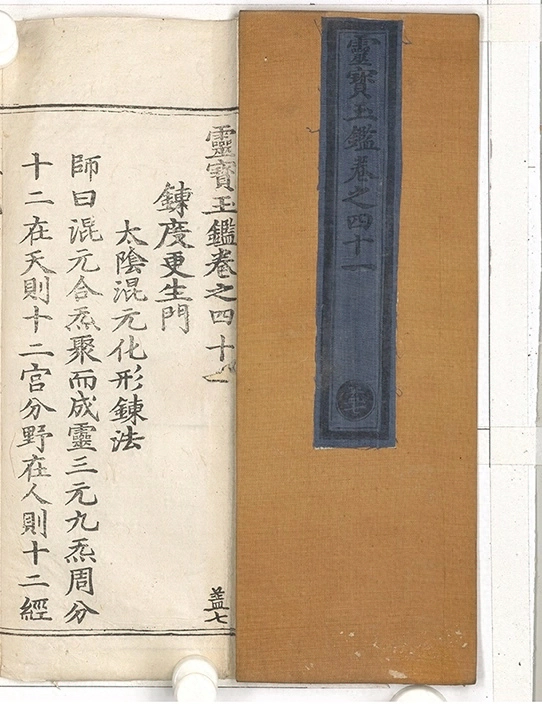 靈寶玉鑑卷之四十一
靈寶玉鑑卷之四十一
盖七
鍊度更生門
太陰混元化形鍊法
師曰混元合炁聚而成靈三元九炁周分
十二在天則十二宮分野在人則十二經